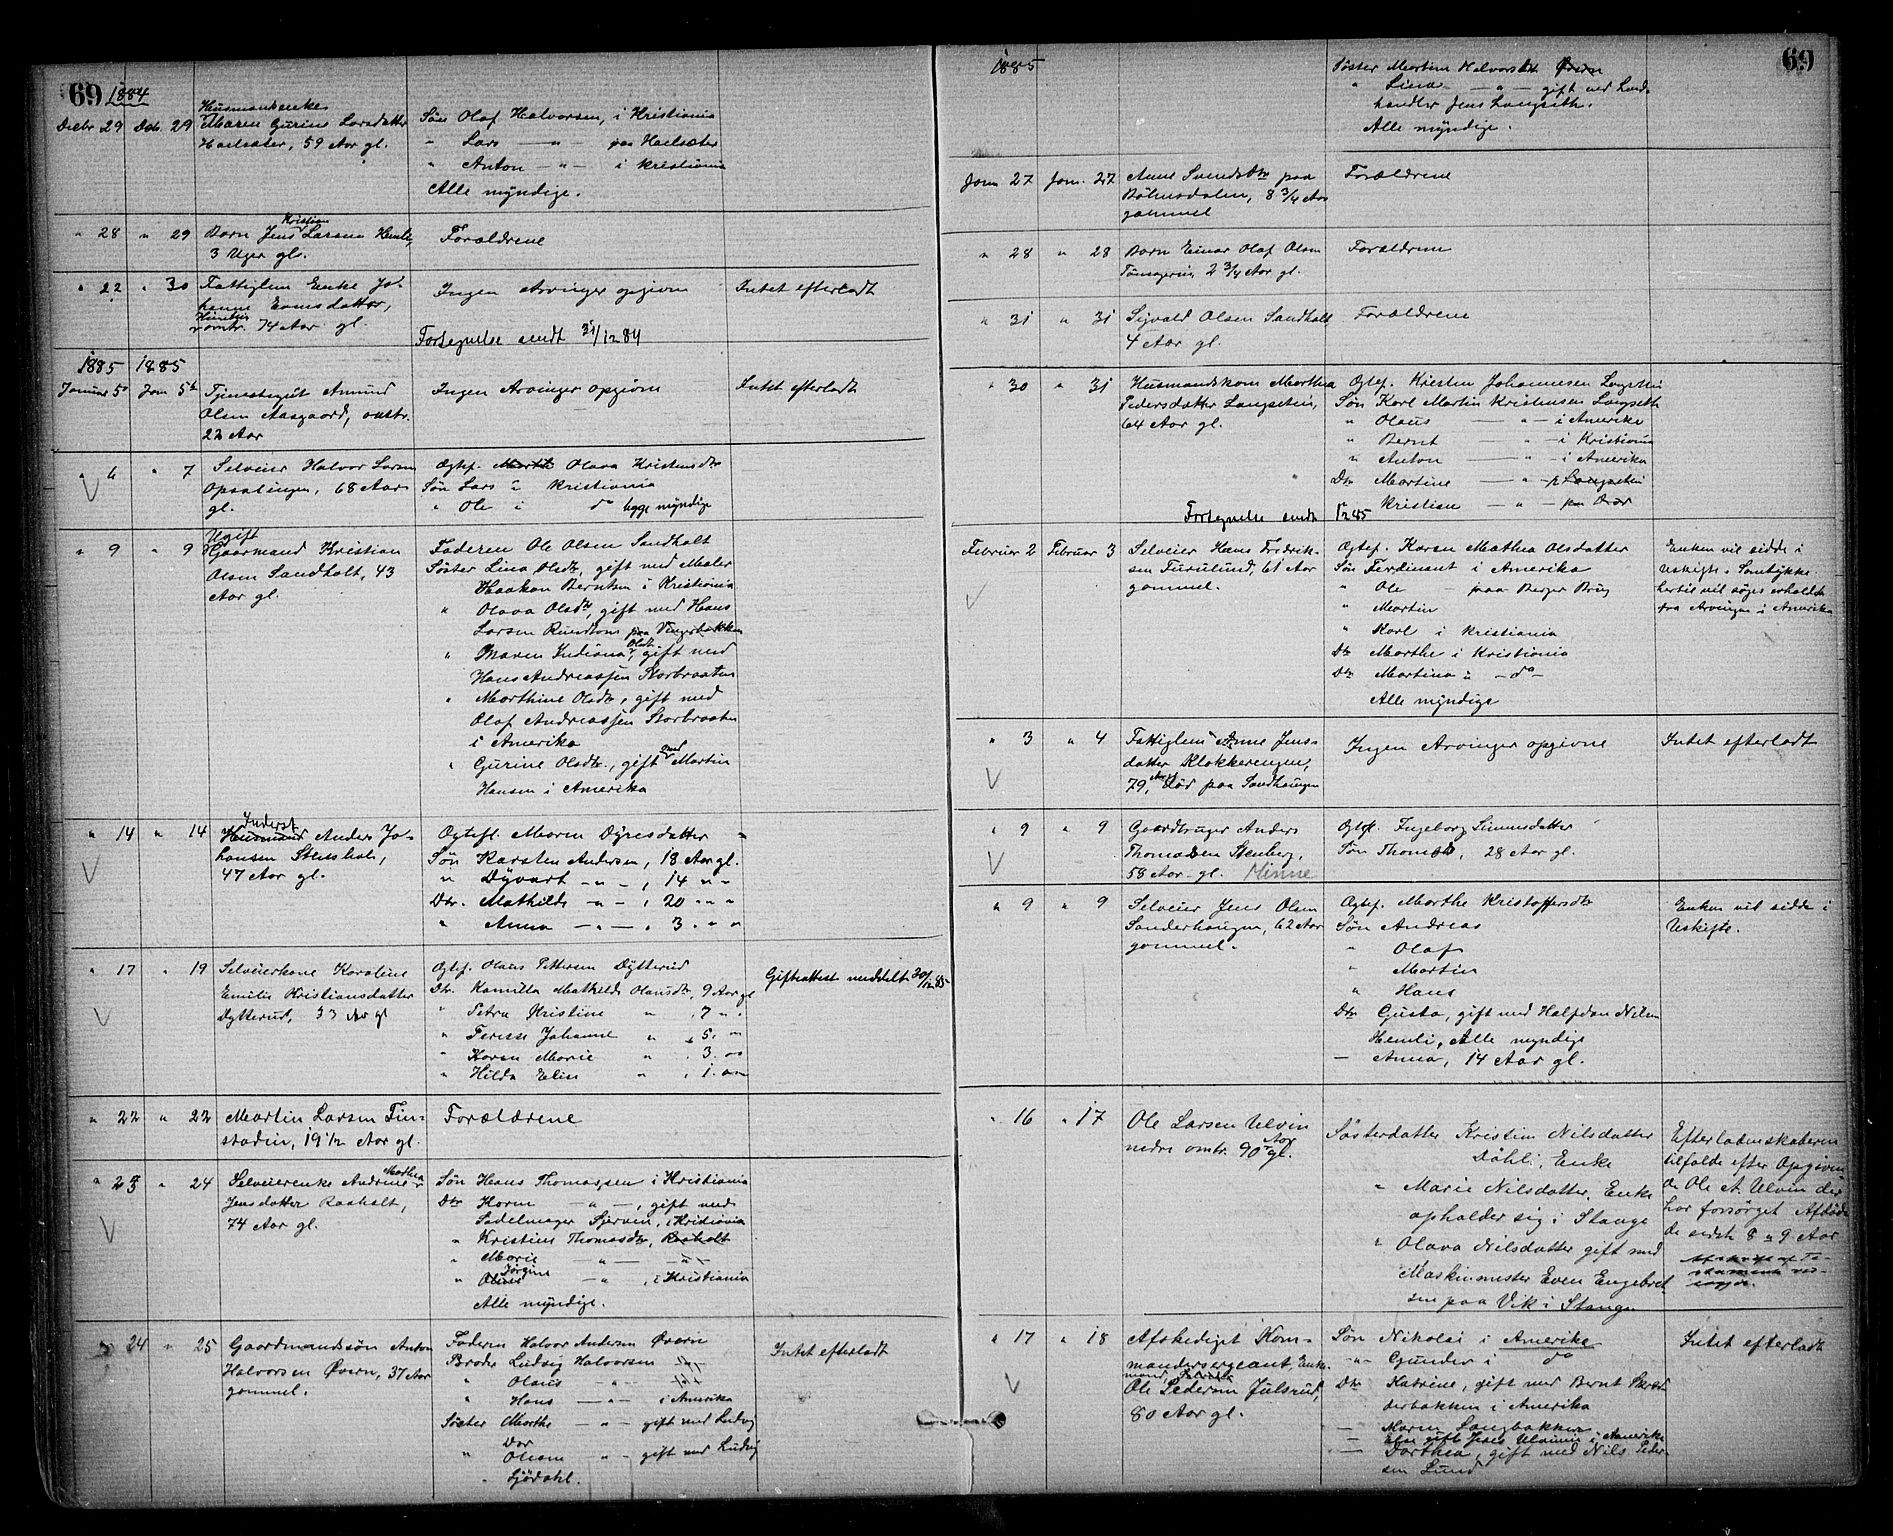 69 1884
Decbr 29 Deb. 29 Husmandsenke
Maren Gurine Larsdatter
Hoelsæter, 59 Aar gl.
Søn Olaf Halvorsen, i Kristiania
" Lars — " — paa Hoelsæter
" Anton — " — i Kristiania
Alle myndige.
" 28 " 29 Barn Jens Kristian Larsen Hemli,
3 Uger gl.
Forældrene
" 22 " 30 Fattiglem Enke Jo-
hanne Evensdatter,
omtr. 74 Aar gl.
Ingen Arvinger opgivne
Intet efterladt
Fortegnelse sendt 31/12 84
1885 1885
Januar 5 Jan 5 Tjenestegut Amund
Olsen Aasgaard, omtr.
22 Aar
Ingen Arvinger opgivne
Intet efterladt
" 6 " 7 Selveier Halvor Larsen
Opsalengen, 68 Aar
gl.
Ogtef. Olava Kristensdtr
Søn Lars i Kristiania
" Ole i do begge myndige
" 9 " 9 Ugift
Gaarmand Kristian
Olsen Sandholt, 43
Aar gl.
Faderen Ole Olsen Sandholt
Søster Lina Olsdtr, gift med Maler
Haakon Berntsen i Kristiania
" Olava Olsdtr, gift med Hans
Larsen Rundtom paa Vingerbakken
" Maren Indiana Olsdtr, gift med
Hans Andreassen Storbraaten
" Marthine Olsdtr, gift med
Olaf Andreassen Storbraaten
i Amerika
" Gurine Olsdtr, gift med Martin
Hansen i Amerika
" 14 " 14 Inderst
Husmand Anders Jo-
hansen Stensholt,
47 Aar gl.
Ogtefl. Maren Dyresdatter
Søn Karsten Andersen, 18 Aar gl.
" Dyvart — " — , 14 " "
Dtr. Mathilde — " — , 20 " "
" Anna — " — , 3 " "
" 17 " 19 Selveierkone Karoline
Emilie Kristiansdatter
Dytterud, 33 Aar gl
Ogtef. Olaus Pettersen Dytterud
Dtr. Kamilla Mathilde Olausdtr, 9 Aar gl
" Petra Kristine " , 7 " "
" Teresse Johanne " , 5 "
" Karen Marie " , 3 " "
" Hilda Elise " , 1 " "
Gifteattest meddelt 30/12 85
" 22 " 22 Martin Larsen Fin-
stadeie, 19 1/2 Aar gl.
Forældrene
" 23 " 24 Selveierenke Andrine Marthea
Jensdatter Raaholt,
74 Aar gl.
Søn Hans Thomassen i Kristiania
Dtr Karen — " — , gift med
Sadelmager Sjerven, i Kristiania
" Kristine Thomasdtr, Raaholt
" Marie — " — — " —
" Jørgine — " — , i Kristiania
Alle myndige.
" 24 " 25 Gaardmandssøn Anton
Halvorsen Øvern, 37 Aar
gammel.
Faderen Halvor Andersen Øvern
Broder Ludvig Halvorsen
" Olaus — " —
" Hans — " — i Amerika
Søster Marthe — " — gift med Ludvig
Dor
" Oleane — " — gift med Ludvig
Sjødahl.
Intet efterladt
1885 69
Søster Martine Halvorsdtr Øvern
" Lina — " — gift med Land-
handler Jens Langseth.
Alle myndige.
Jan 27 Jan. 27 Anne Svendsdtr paa
Bøhnsdalen, 8 3/4 Aar
gammel
Forældrene
" 28 " 28 Barn Einar Olaf Olsen
2 3/4 Aar gl.
Forældrene
" 31 " 31 Sigvald Olsen Sandholt
4 Aar gl.
Forældrene
" 30 " 31 Husmandskone Marthea
Pedersdatter Langseteie,
64 Aar gl.
Ogtef. Kristen Johannesen Langseteie
Søn Karl Martin Kristensen Langseth
" Olaus — " — i Amerika
" Bernt — " — i Kristiania
" Anton — " — i Amerika
Dtr Martine — " — p Langseteie
" Kristine — " —
Fortegnelse sendt 1/2 85
Februar 2 Februar 3 Selveier Hans Fredrik-
sen Furulund, 61 Aar
gammel.
Ogtef. Karen Mathea Olsdatter
Søn Ferdinant i Amerika
" Ole — paa Berger Brug
" Martin
" Karl i Kristiania
Dtr Marthe i Kristiania
Dtr Martina i — do —
Alle myndige
Enken vil sidde i
Uskifte. Samtykke
hertil vil søges erholdt
fra Arvingen i Amerika
" 3 " 4 Fattiglem Anne Jens-
datter Klokkerengen,
79 Aar, død paa Sandhaugen
Ingen Arvinger opgivne
Intet efterladt
" 9 " 9 Gaardbruger Anders
Thomassen Stenberg,
58 Aar gl. Minne
Ogtef. Ingeborg Simensdatter
Søn Thomas, 28 Aar gl.
" 9 " 9 Selveier Jens Olsen
Sanderhaugen, 62 Aar
gammel.
Ogtef. Marthe Kristoffersdtr
Søn Andreas
" Olaf
" Martin
" Hans
Dtr Gusta, gift med Halfdan Nilsen
Hemli, Alle myndige
— Anna, 14 Aar gl.
Enken vil sidde i
Uskifte.
" 16 " 17 Ole Larsen Ulvin
nedre omtr. 90 Aar gl.
Søsterdatter Kristine Nilsdatter
Dahli, Enke
" Marie Nilsdatter, Enke
opholder sig i Stange
" Olava Nilsdatter gift med
Maskinmester Even Engebret-
sen paa Vik i Stange
Efterladenskaberne
tilfalde efter Opgiven-
de Ole A. Ulvin der
har forsørget Afdøde
de sidste 8 a 9 Aar
" 17 " 18 Afskediget Kom-
mandersergeant, Enke-
mand,
Ole Pedersen Julsrud,
80 Aar gl.
Søn Nikolai i Amerika
— " — Gunder i do
Dtr Katrine, gift med Bernt Skræd-
derbakken i Amerika
— Maren Langbakken
— Else gift Jens Ulvin i Amerika
— Dorthea, gift med Nils Peder-
sen Lund
Intet efterladt